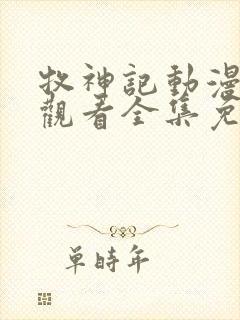 牧神記動漫
觀看全集免
單時年